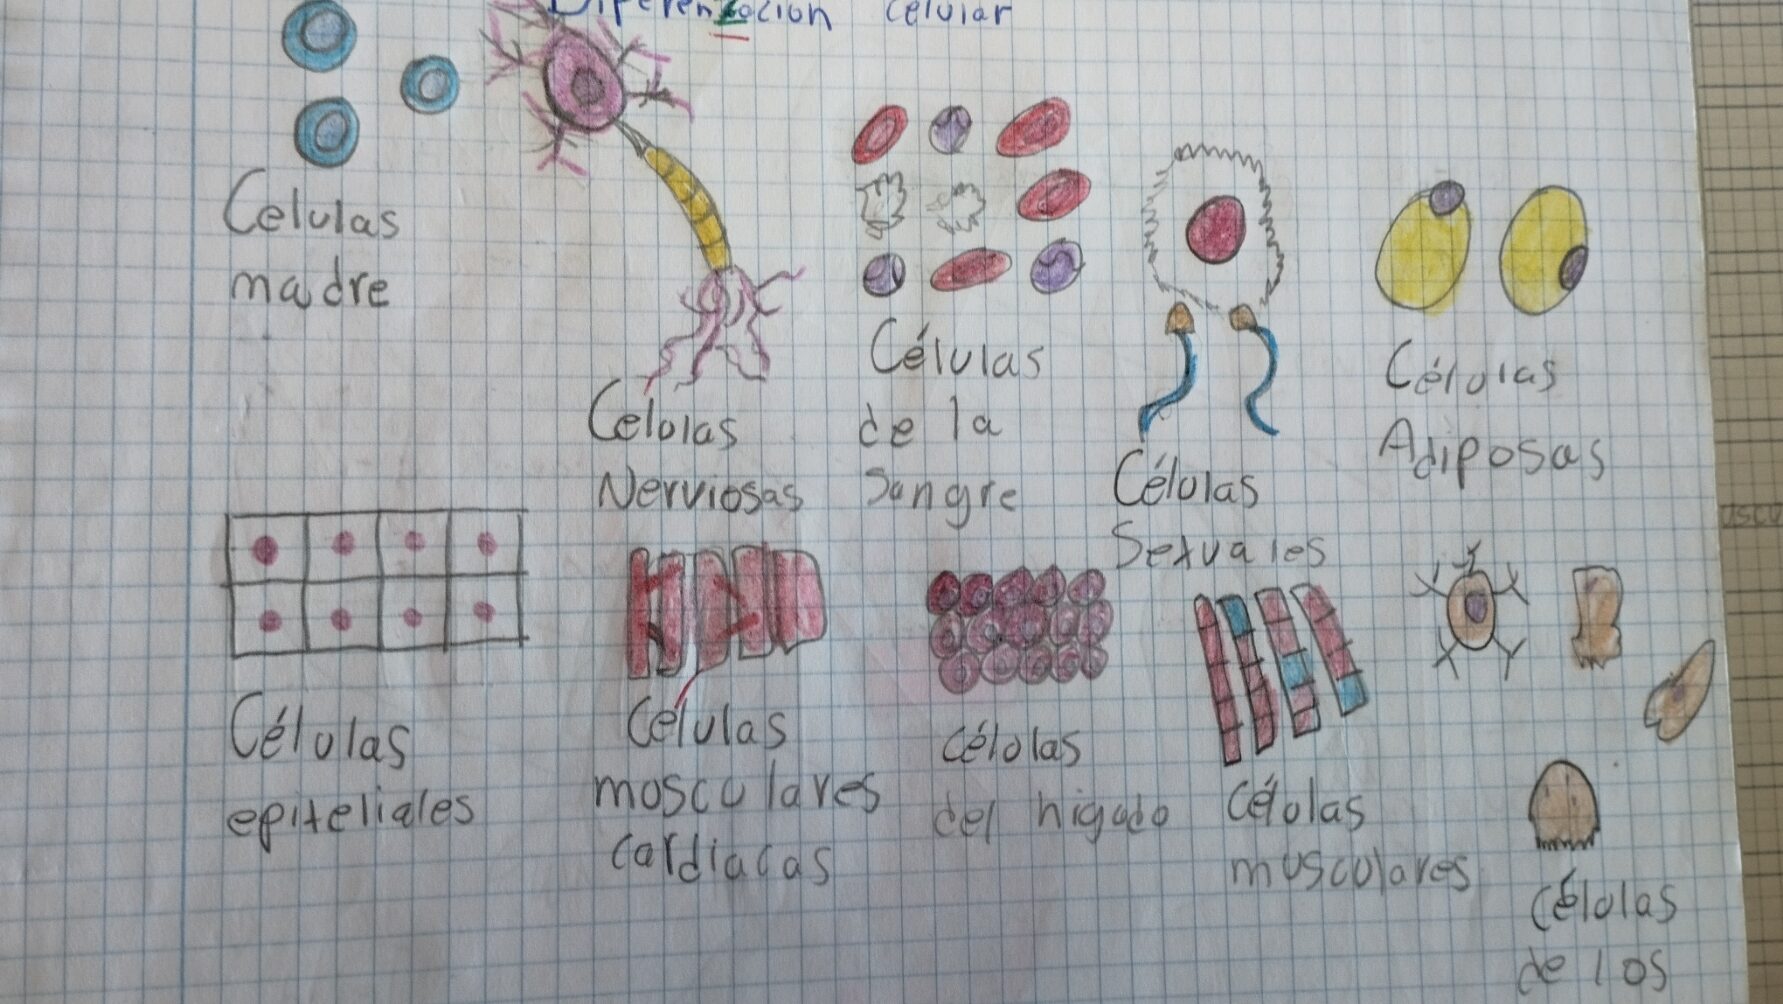 Diferenzacion celular
Celulas
madre
Celulas
Nerviosas
Células
de la
Sangre
Células
Sexuales
Células
Adiposas
Células
epiteliales
Células
musculares
cardiacas
células
del higado
Células
musculares
células
de los